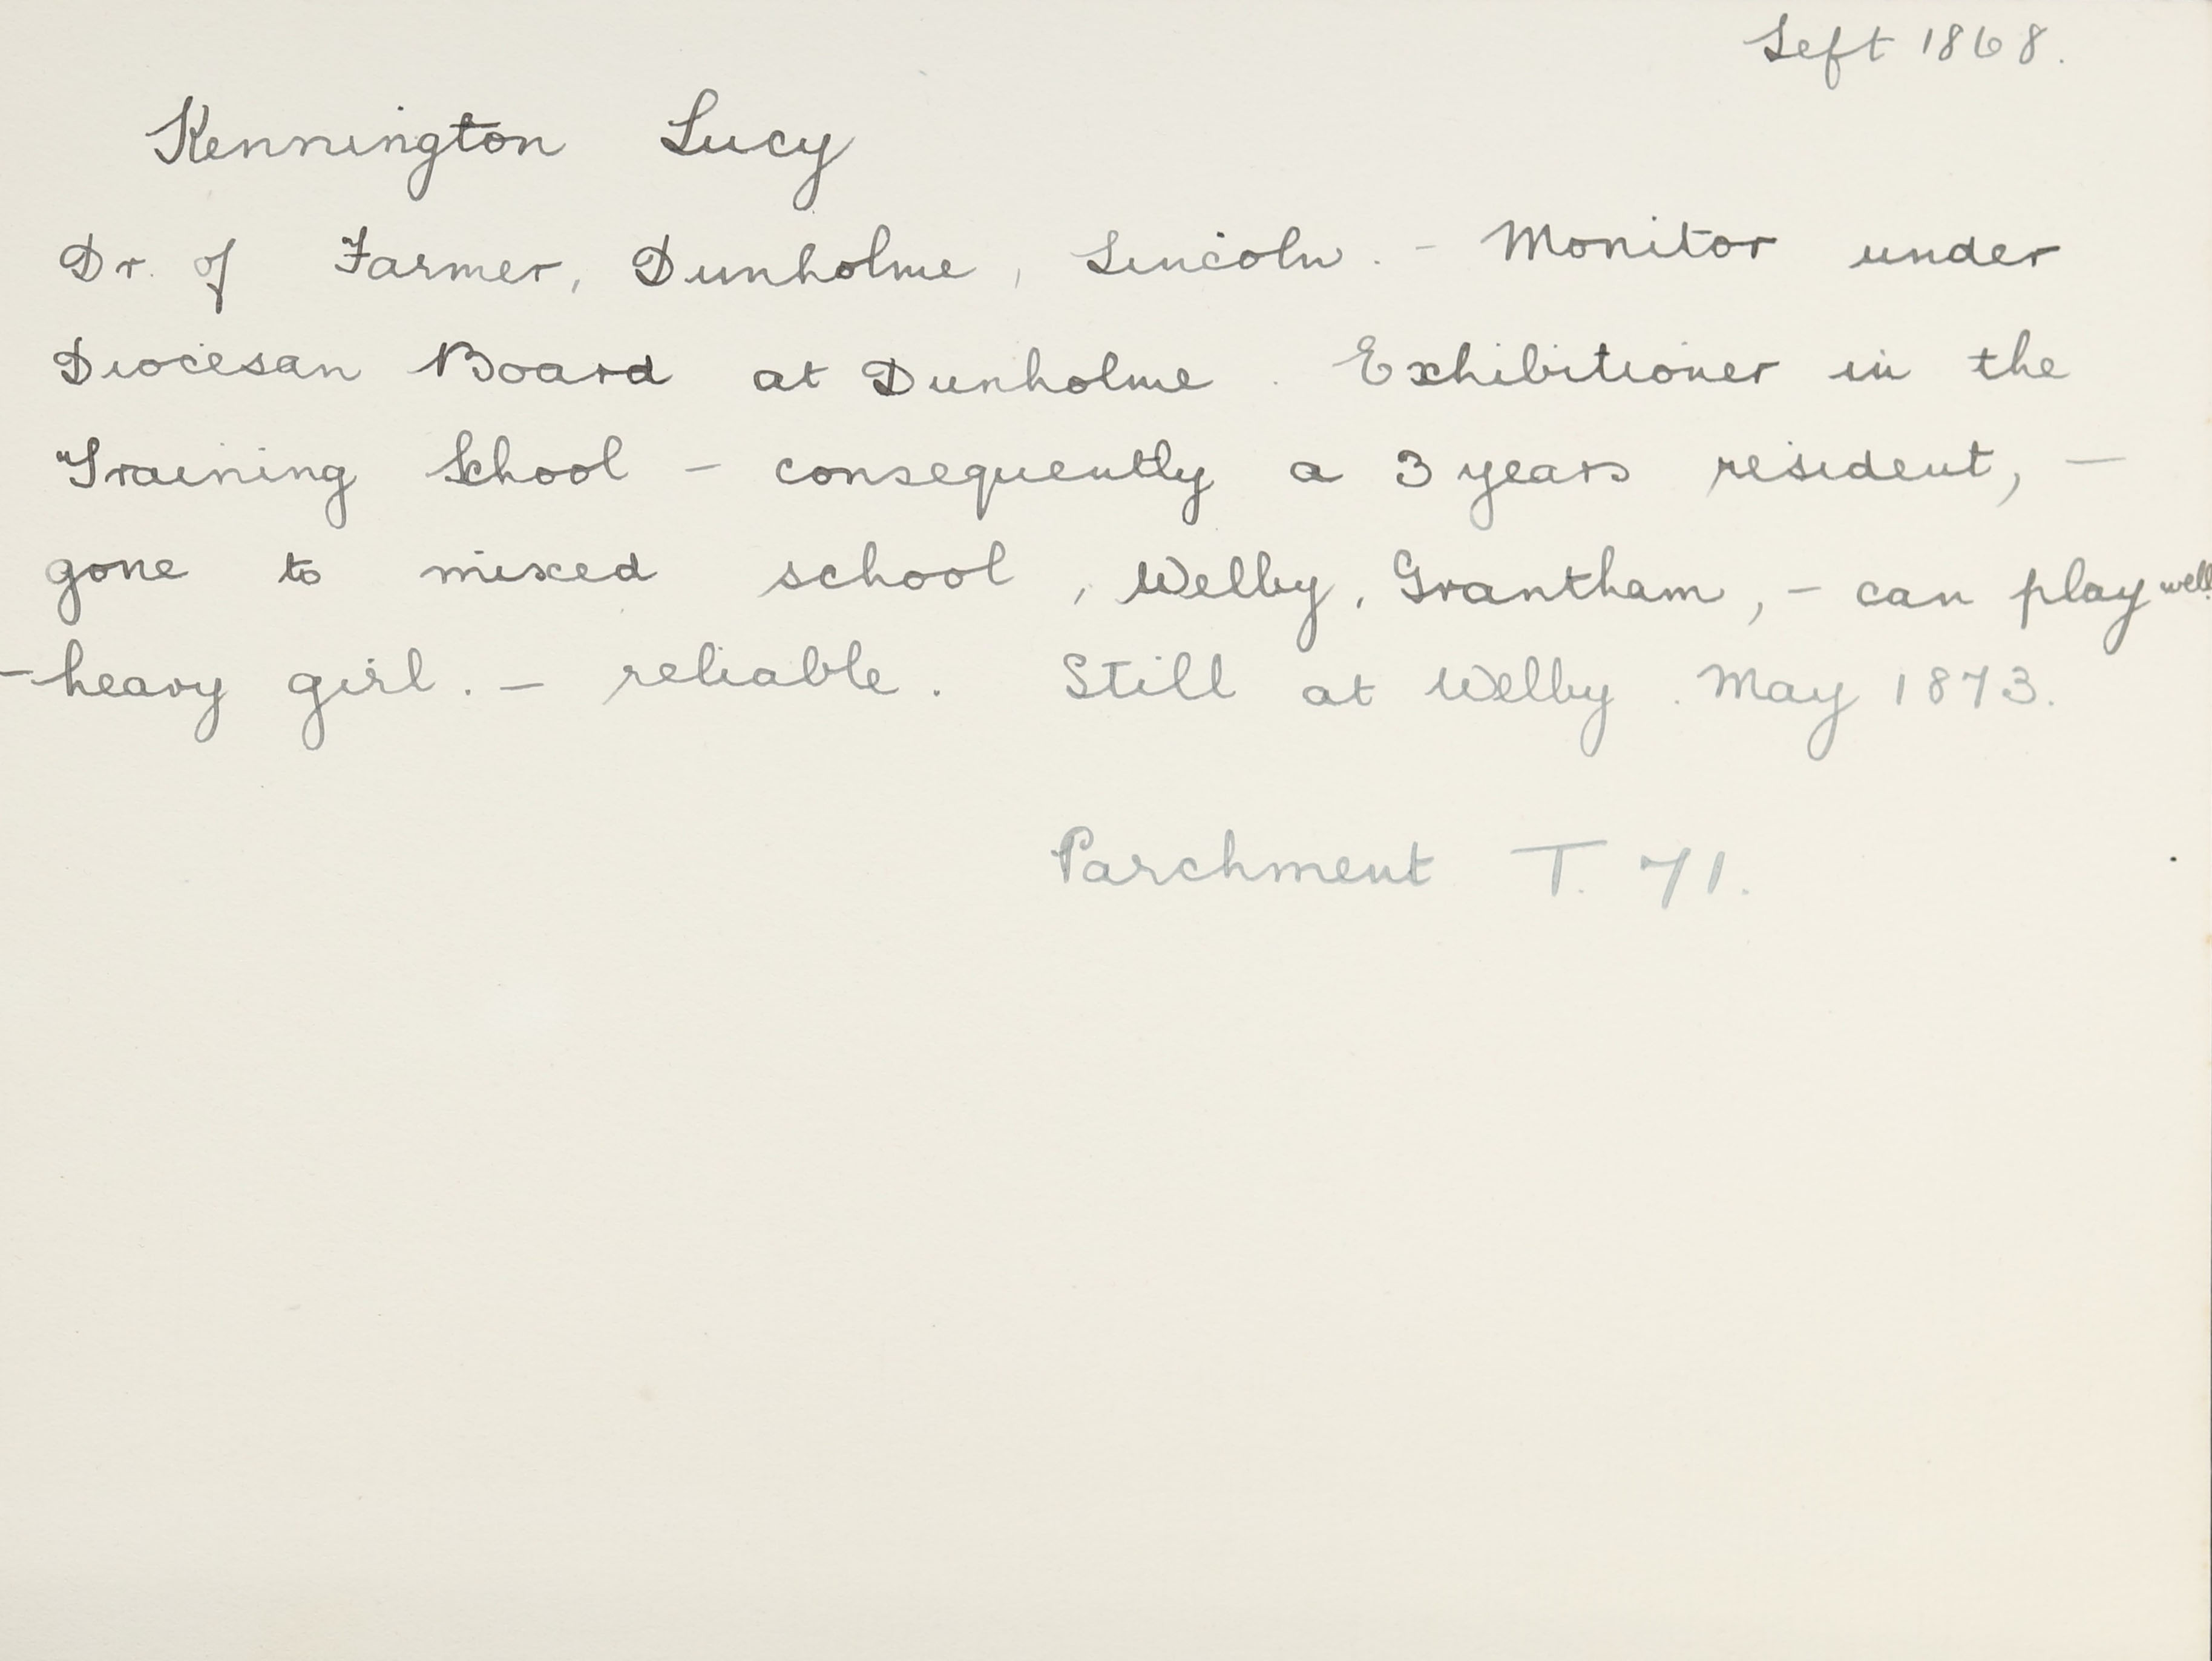 Left 1868.
Kennington Lucy
Dr. of Farmer, Dunholme, Lincoln. - Monitor under
Diocesan Board at Dunholme. Exhibitioner in the
Training School - consequently a 3 years resident, -
gone to mixed school, Welby, Grantham, - can play well.
- heavy girl. - reliable. Still at Welby. May 1873.
Parchment T. 71.